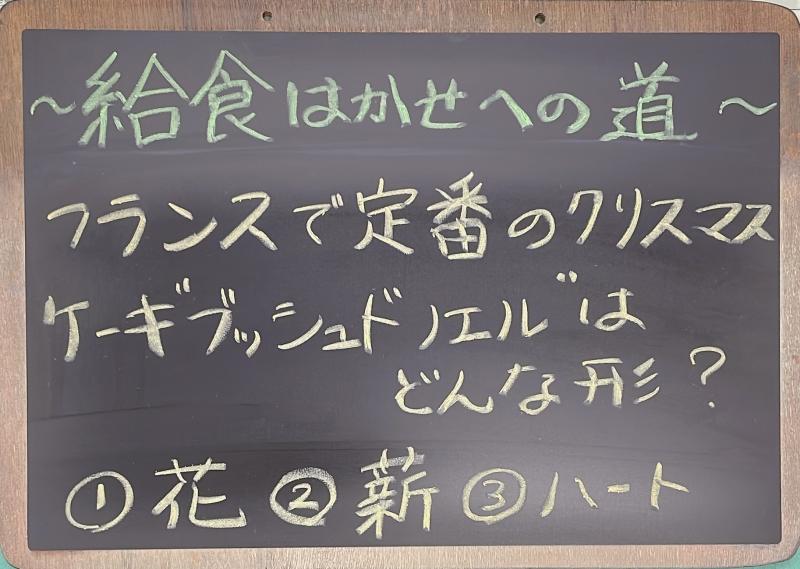 ～給食はかせへの道～
フランスで定番のクリスマス
ケーキ"ブッシュドノエル"は
どんな形？
①花 ②薪 ③ハート